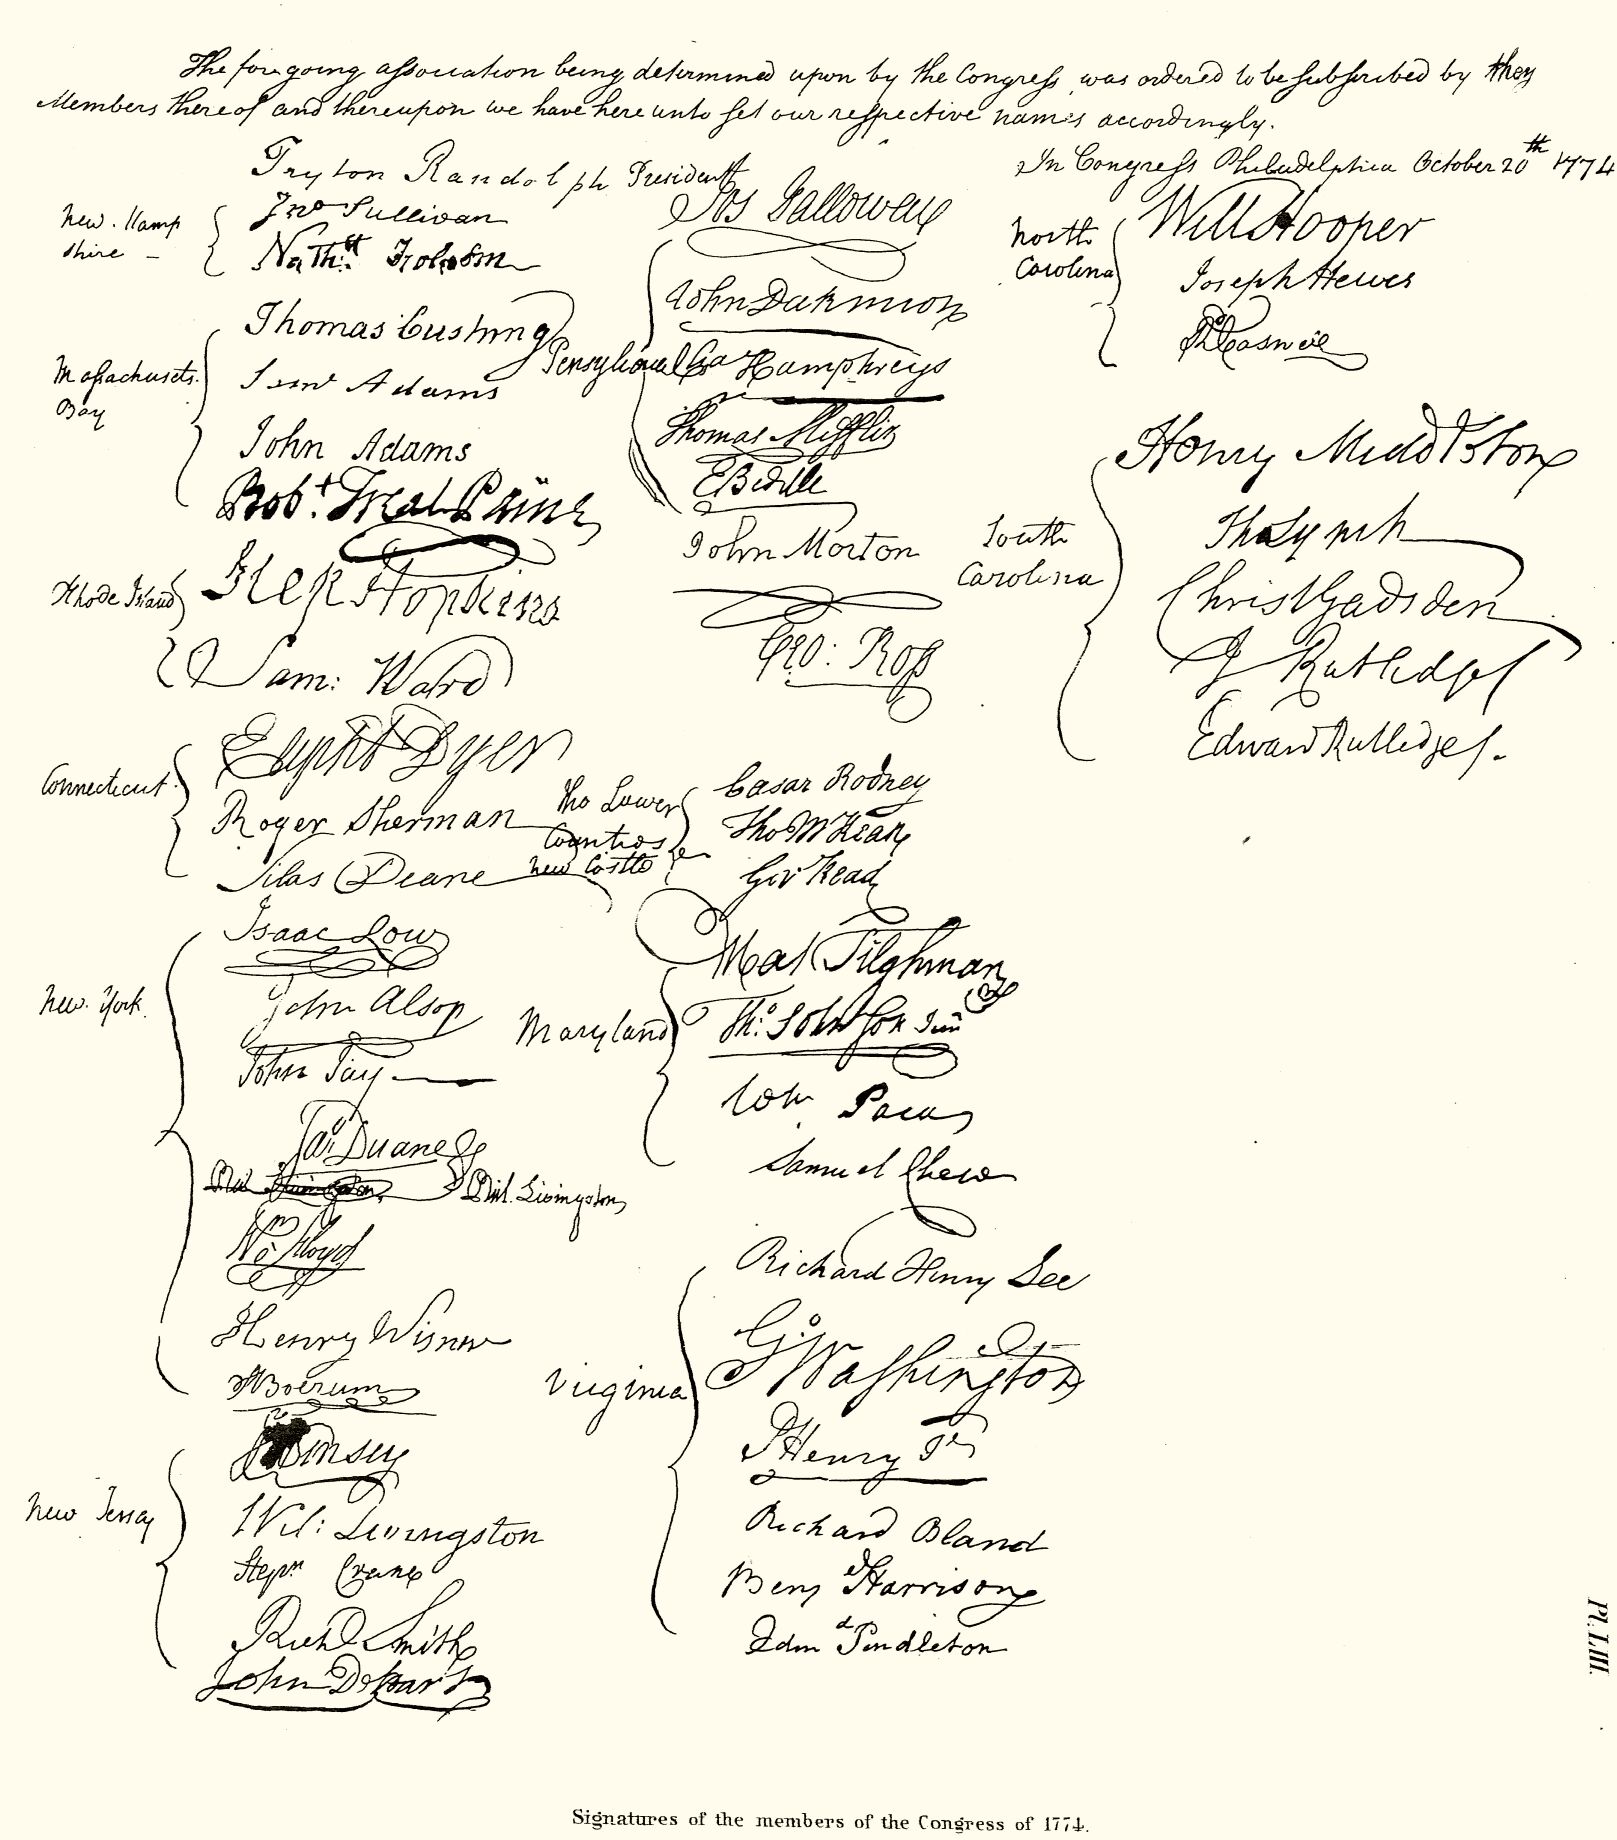 The foregoing association being determined upon by the Congress, was ordered to be subscribed by the
Members thereof and thereupon we have here unto set our respective names accordingly.
In Congress Philadelphia October 20th 1774
Peyton Randolph President
New. Hamp
shire –
Jno Sullivan
Nathl. Folsom
Massachusets.
Bay
Thomas Cushing
Saml Adams
John Adams
Robt. Treat Paine
Rhode Island
Step Hopkins
Sam: Ward
Connecticut
Elipht Dyer
Roger Sherman
Silas Deane
New. York.
Isaac Low
John Alsop
John Jay
Jas Duane
Phil. Livingston
Wm Floyd
Henry Wisner
S Boerum
New Jersay
Kinsey
Wil: Livingston
Stepn Crane
Richd Smith
John De Hart
Pensylvania
Jos Galloway
John Dickinson
Cha Humphreys
Thomas Mifflin
E Biddle
John Morton
Geo: Ross
The Lower
Counties
New Castle
Cæsar Rodney
Tho M Kean
Geo Read
Maryland
Mat Tilghman
Th: Johnson Junr
Wm Paca
Samuel Chase
Virginia
Richard Henry Lee
Go Washington
P Henry Jr
Richard Bland
Benj Harrison
Edmd Pendleton
North
Carolina
Will Hooper
Joseph Hewes
R Caswell
South
Carolina
Henry Middleton
Tho Lynch
Christ Gadsden
J Rutledge
Edward Rutledge.
Pl. LIII.
Signatures of the members of the Congress of 1774.